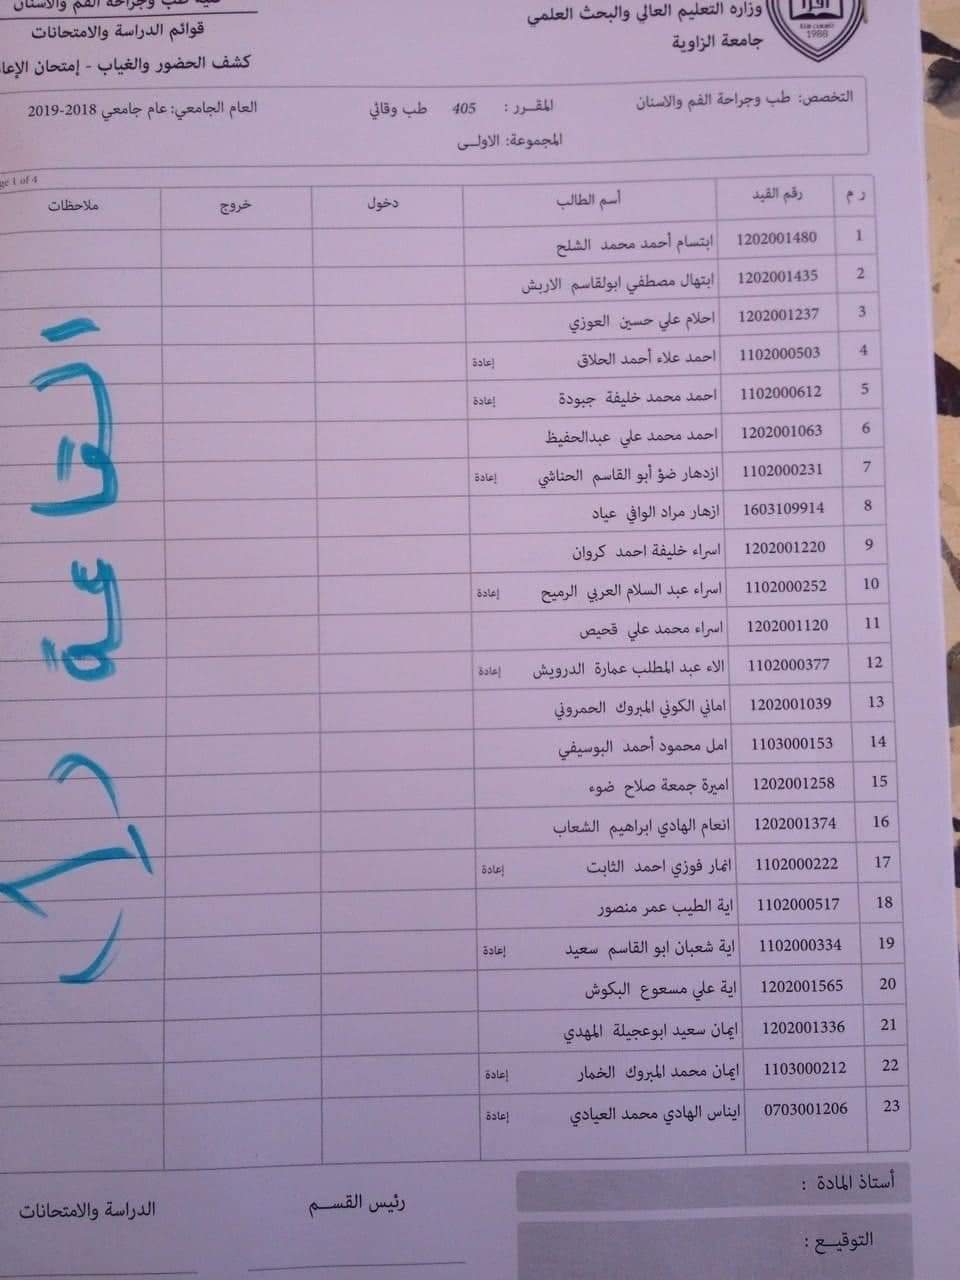 وزاره التعليم العالي والبحث العلمي
جامعة الزاوية
1988
كلية طب وجراحة الفم والاسنان
قوائم الدراسة والامتحانات
كشف الحضور والغياب - إمتحان الإعا
التخصص: طب وجراحة الفم والاسنان المقـرر : 405 طب وقائي العام الجامعي: عام جامعي 2018-2019
المجموعة: الاولـى
ge 1 of 4
ر م رقم القيد أسم الطالب دخول خروج ملاحظات
1 1202001480 ابتسام أحمد محمد الشلح
2 1202001435 ابتهال مصطفي ابولقاسم الاربش
3 1202001237 احلام علي حسين العوزي
4 1102000503 احمد علاء أحمد الحلاق إعادة
5 1102000612 احمد محمد خليفة جبودة إعادة
6 1202001063 احمد محمد علي عبدالحفيظ
7 1102000231 ازدهار ضؤ أبو القاسم الحناشي إعادة
8 1603109914 ازهار مراد الوافي عياد
9 1202001220 اسراء خليفة احمد كروان
10 1102000252 اسراء عبد السلام العربي الرميح إعادة
11 1202001120 اسراء محمد علي قحيص
12 1102000377 الاء عبد المطلب عمارة الدرويش إعادة
13 1202001039 اماني الكوني المبروك الحمروني
14 1103000153 امل محمود أحمد البوسيفي
15 1202001258 اميرة جمعة صلاح ضوء
16 1202001374 انعام الهادي ابراهيم الشعاب
17 1102000222 انمار فوزي احمد الثابت إعادة
18 1102000517 اية الطيب عمر منصور
19 1102000334 اية شعبان ابو القاسم سعيد إعادة
20 1202001565 اية علي مسعوع البكوش
21 1202001336 ايمان سعيد ابوعجيلة المهدي
22 1103000212 ايمان محمد المبروك الخمار إعادة
23 0703001206 ايناس الهادي محمد العيادي إعادة
القاعة (1)
أستاذ المادة :
التوقيـع :
رئيس القســم
الدراسة والامتحانات